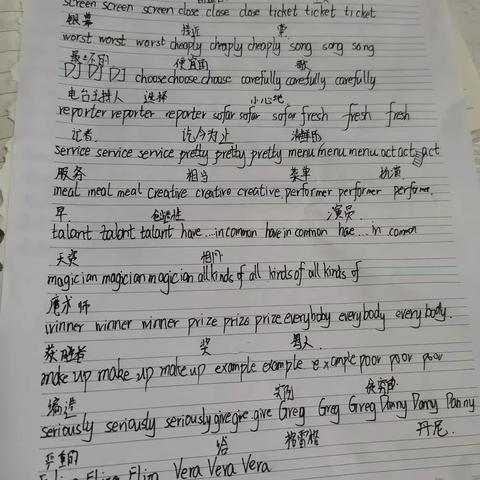 screen screen screen close close close ticket ticket ticket
银幕 接近 票
worst worst worst cheaply cheaply cheaply song song song
最差的 便宜的 歌
DJ DJ DJ choose choose choose carefully carefully carefully
电台主持人 选择 小心地
reporter reporter reporter sofar sofar sofar fresh fresh fresh
记者 迄今为止
service service service pretty pretty pretty menu menu menu act act act
服务 相当 菜单
meal meal meal creative creative creative performer performer performer.
早. 创造性 演员
talant talant talant have...in common have in common hae...in common
天赏 相同
magician magician magician all kinds of all kinds of all kinds of
魔术师
winner winner winner prize prize prize everybody everybody everybody.
获胜者 奖
make up make up make up example example example poor poor poor
编造
seriously seriously seriously give give give Greg Greg Greg Danny Danny Danny
严重的 给 格雷格 丹尼.
Vera Vera Vera